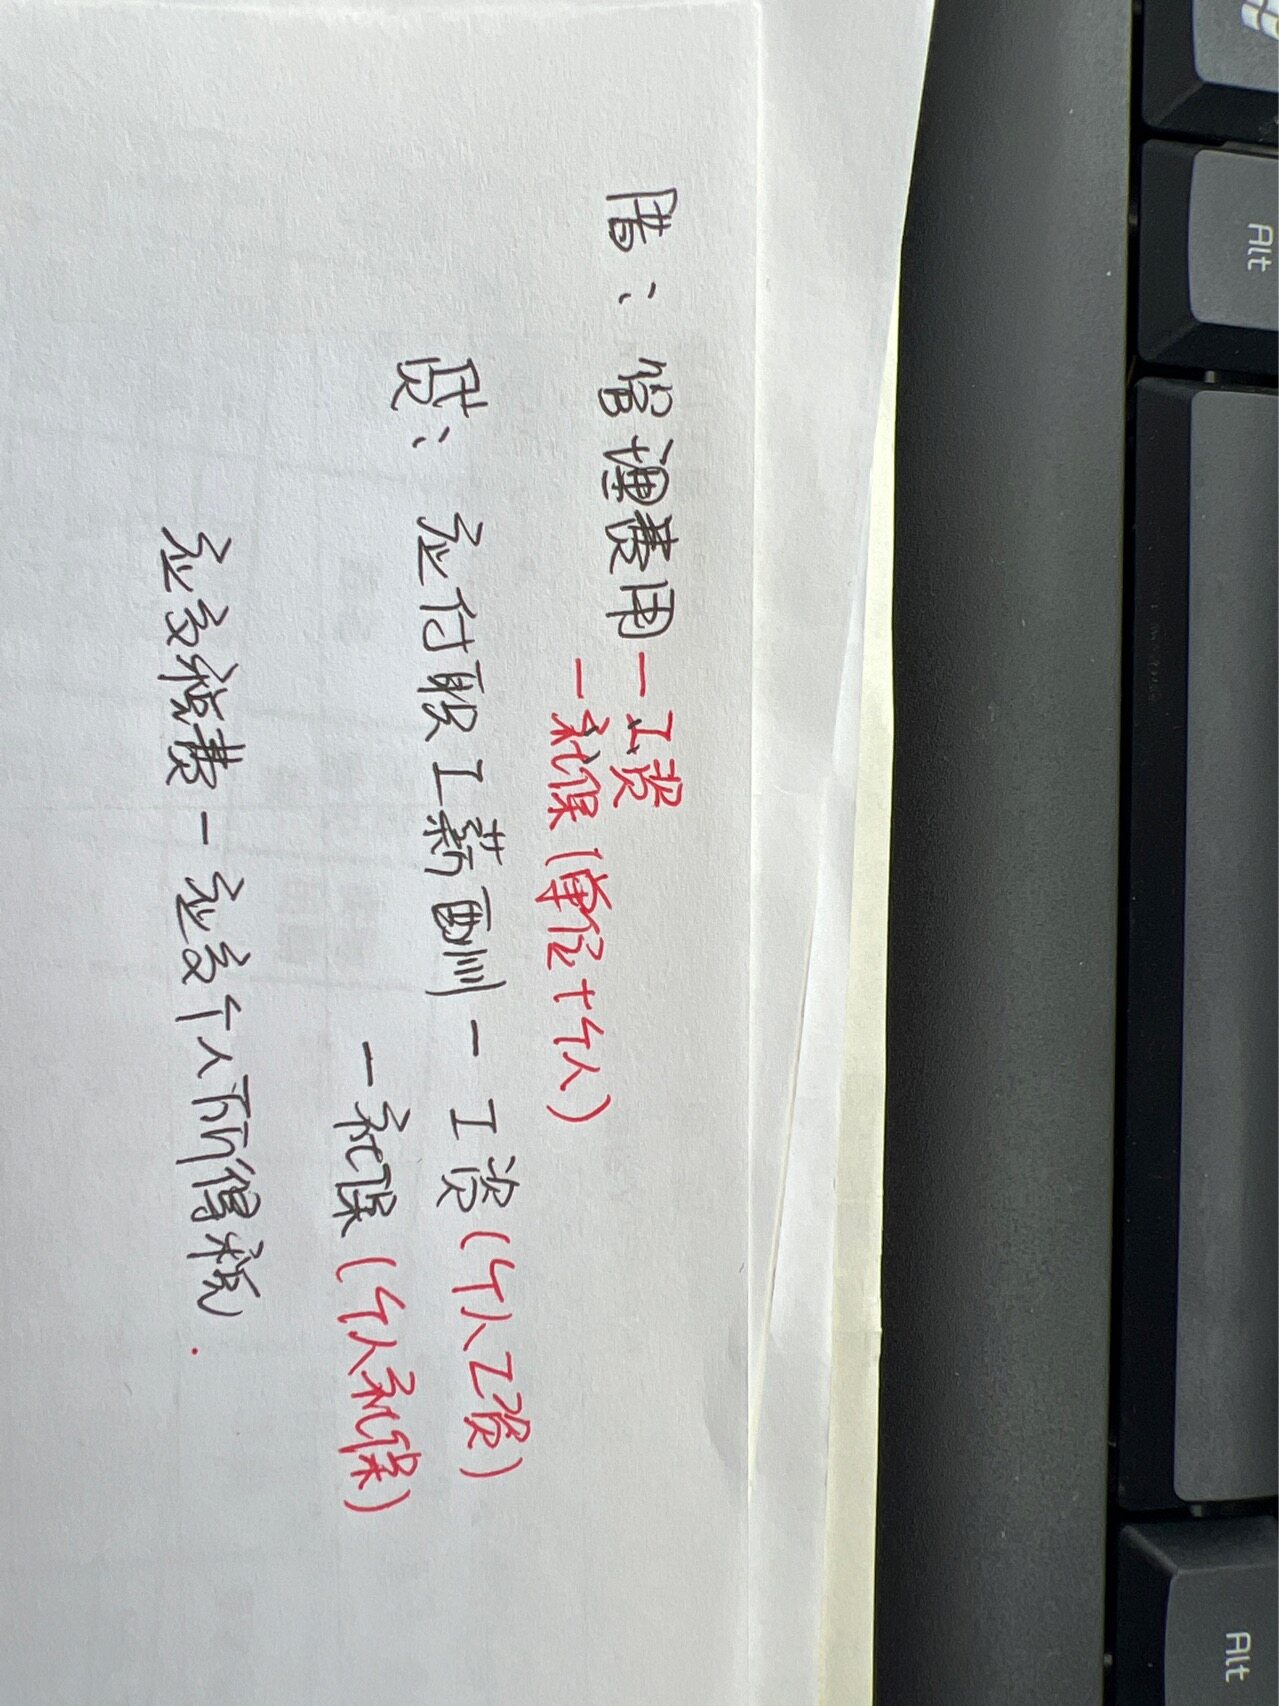 借：管理费用－工资
－社保（单位+个人）
贷：应付职工薪酬－工资（个人工资）
－社保（个人社保）
应交税费－应交个人所得税.
Alt
Alt